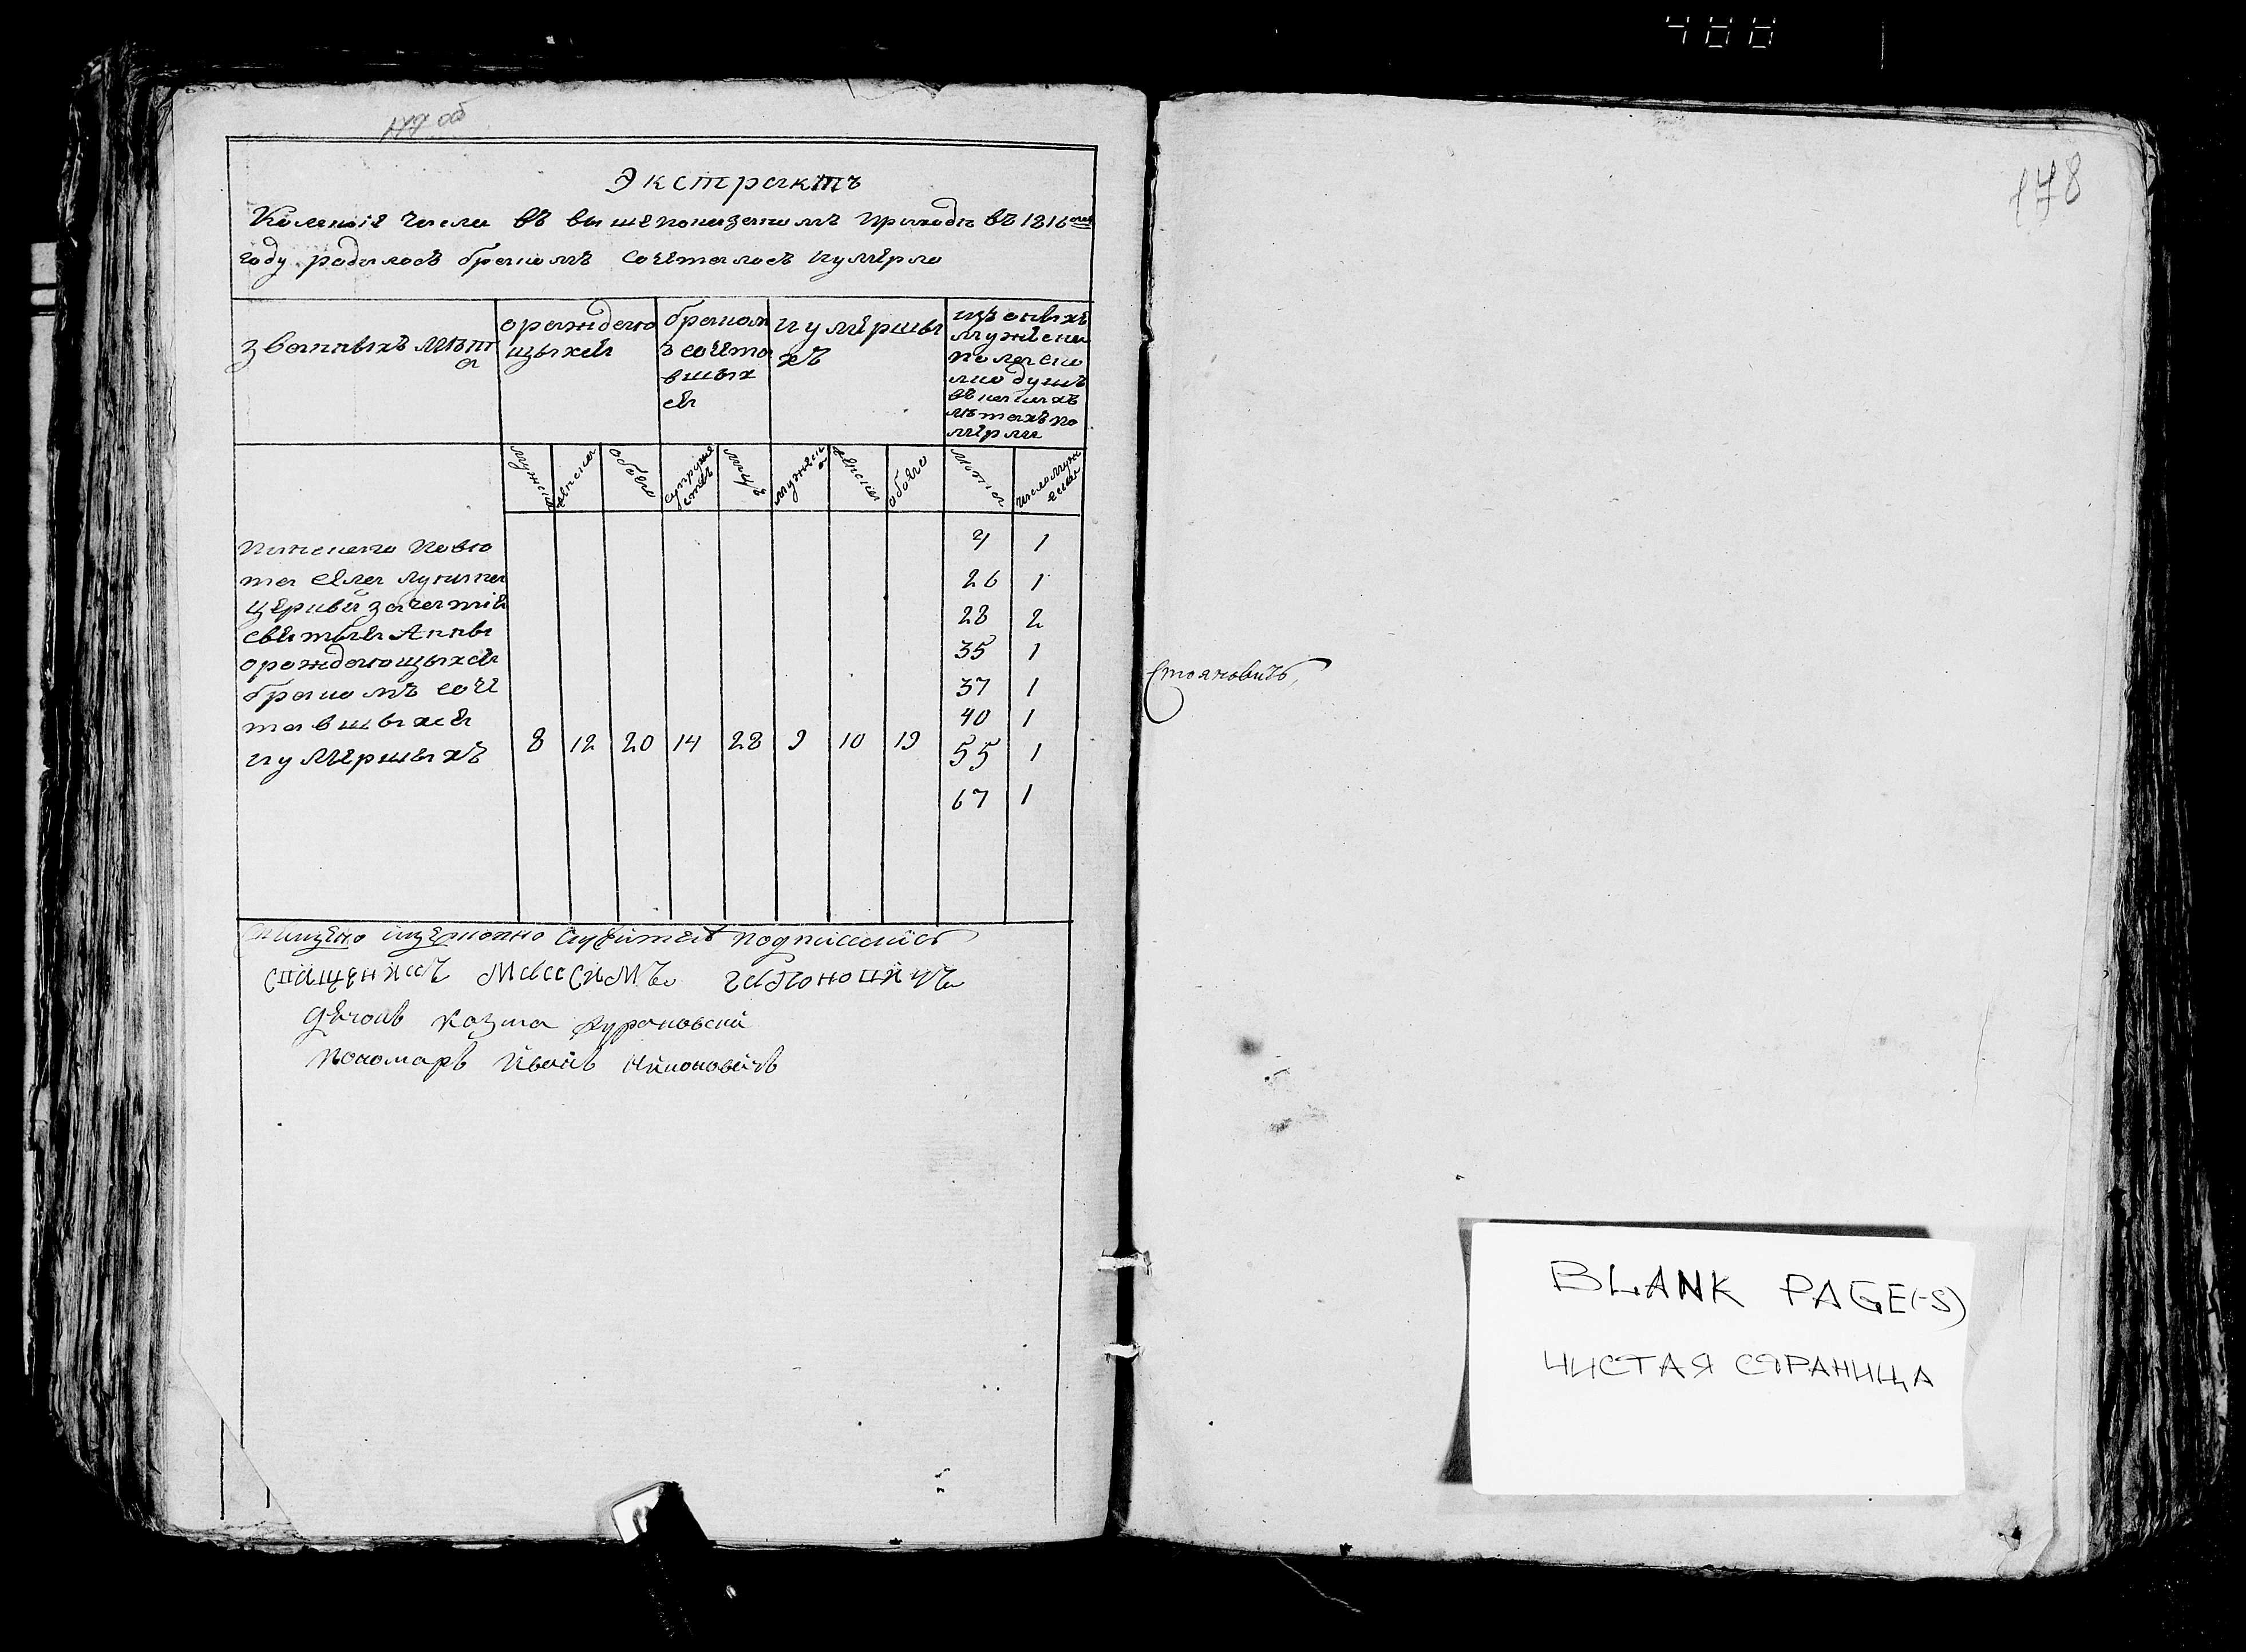 488
177 об
Экстрактъ
Коликое число въ вышепоказаномъ приходѣ въ 1816мъ
году родилосъ бракомъ сочеталосъ иумерло
званныхъ мѣст
а
ораждаю
щыхся
браком
ъ сочета
вшых
ся
иумершы
хъ
изъ оныхъ
мужеска
пола ско
лко душъ
въ какихъ
лѣтахъ по
мерли
мужска
женска
обоего
супруже
ствъ
лицъ
мужска
женска
обоего
лѣта
число муж
еска
Пинского Повѣ
та села лунина
церкви зачатия
святыя Анны
ораждающыхся
бракомъ соче
тавшыхся
иумершыхъ
8 12 20 14 28 9 10 19
4 1
26 1
28 2
35 1
37 1
40 1
55 1
67 1
подписались
священникъ Максимъ
дячокъ козма
Пономаръ Иванъ
178
Стояновичъ,
BLANK PAGE(-S)
ЧИСТАЯ СТРАНИЦА